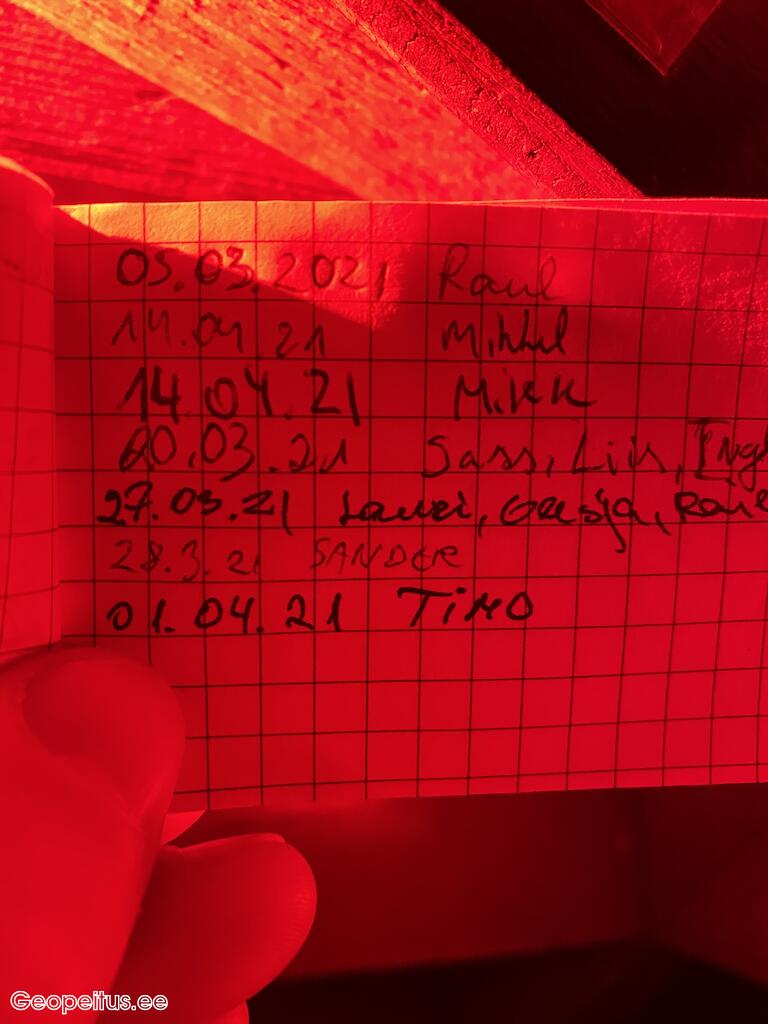 05.03.2021 Raul
14.04.21 Mihkel
14.04.21 Mikk
20.03.21 Sass, Liis, Ing
27.03.21 Lauri,
28.3.21 SANDER
01.04.21 TIMO
Geopeitus.ee